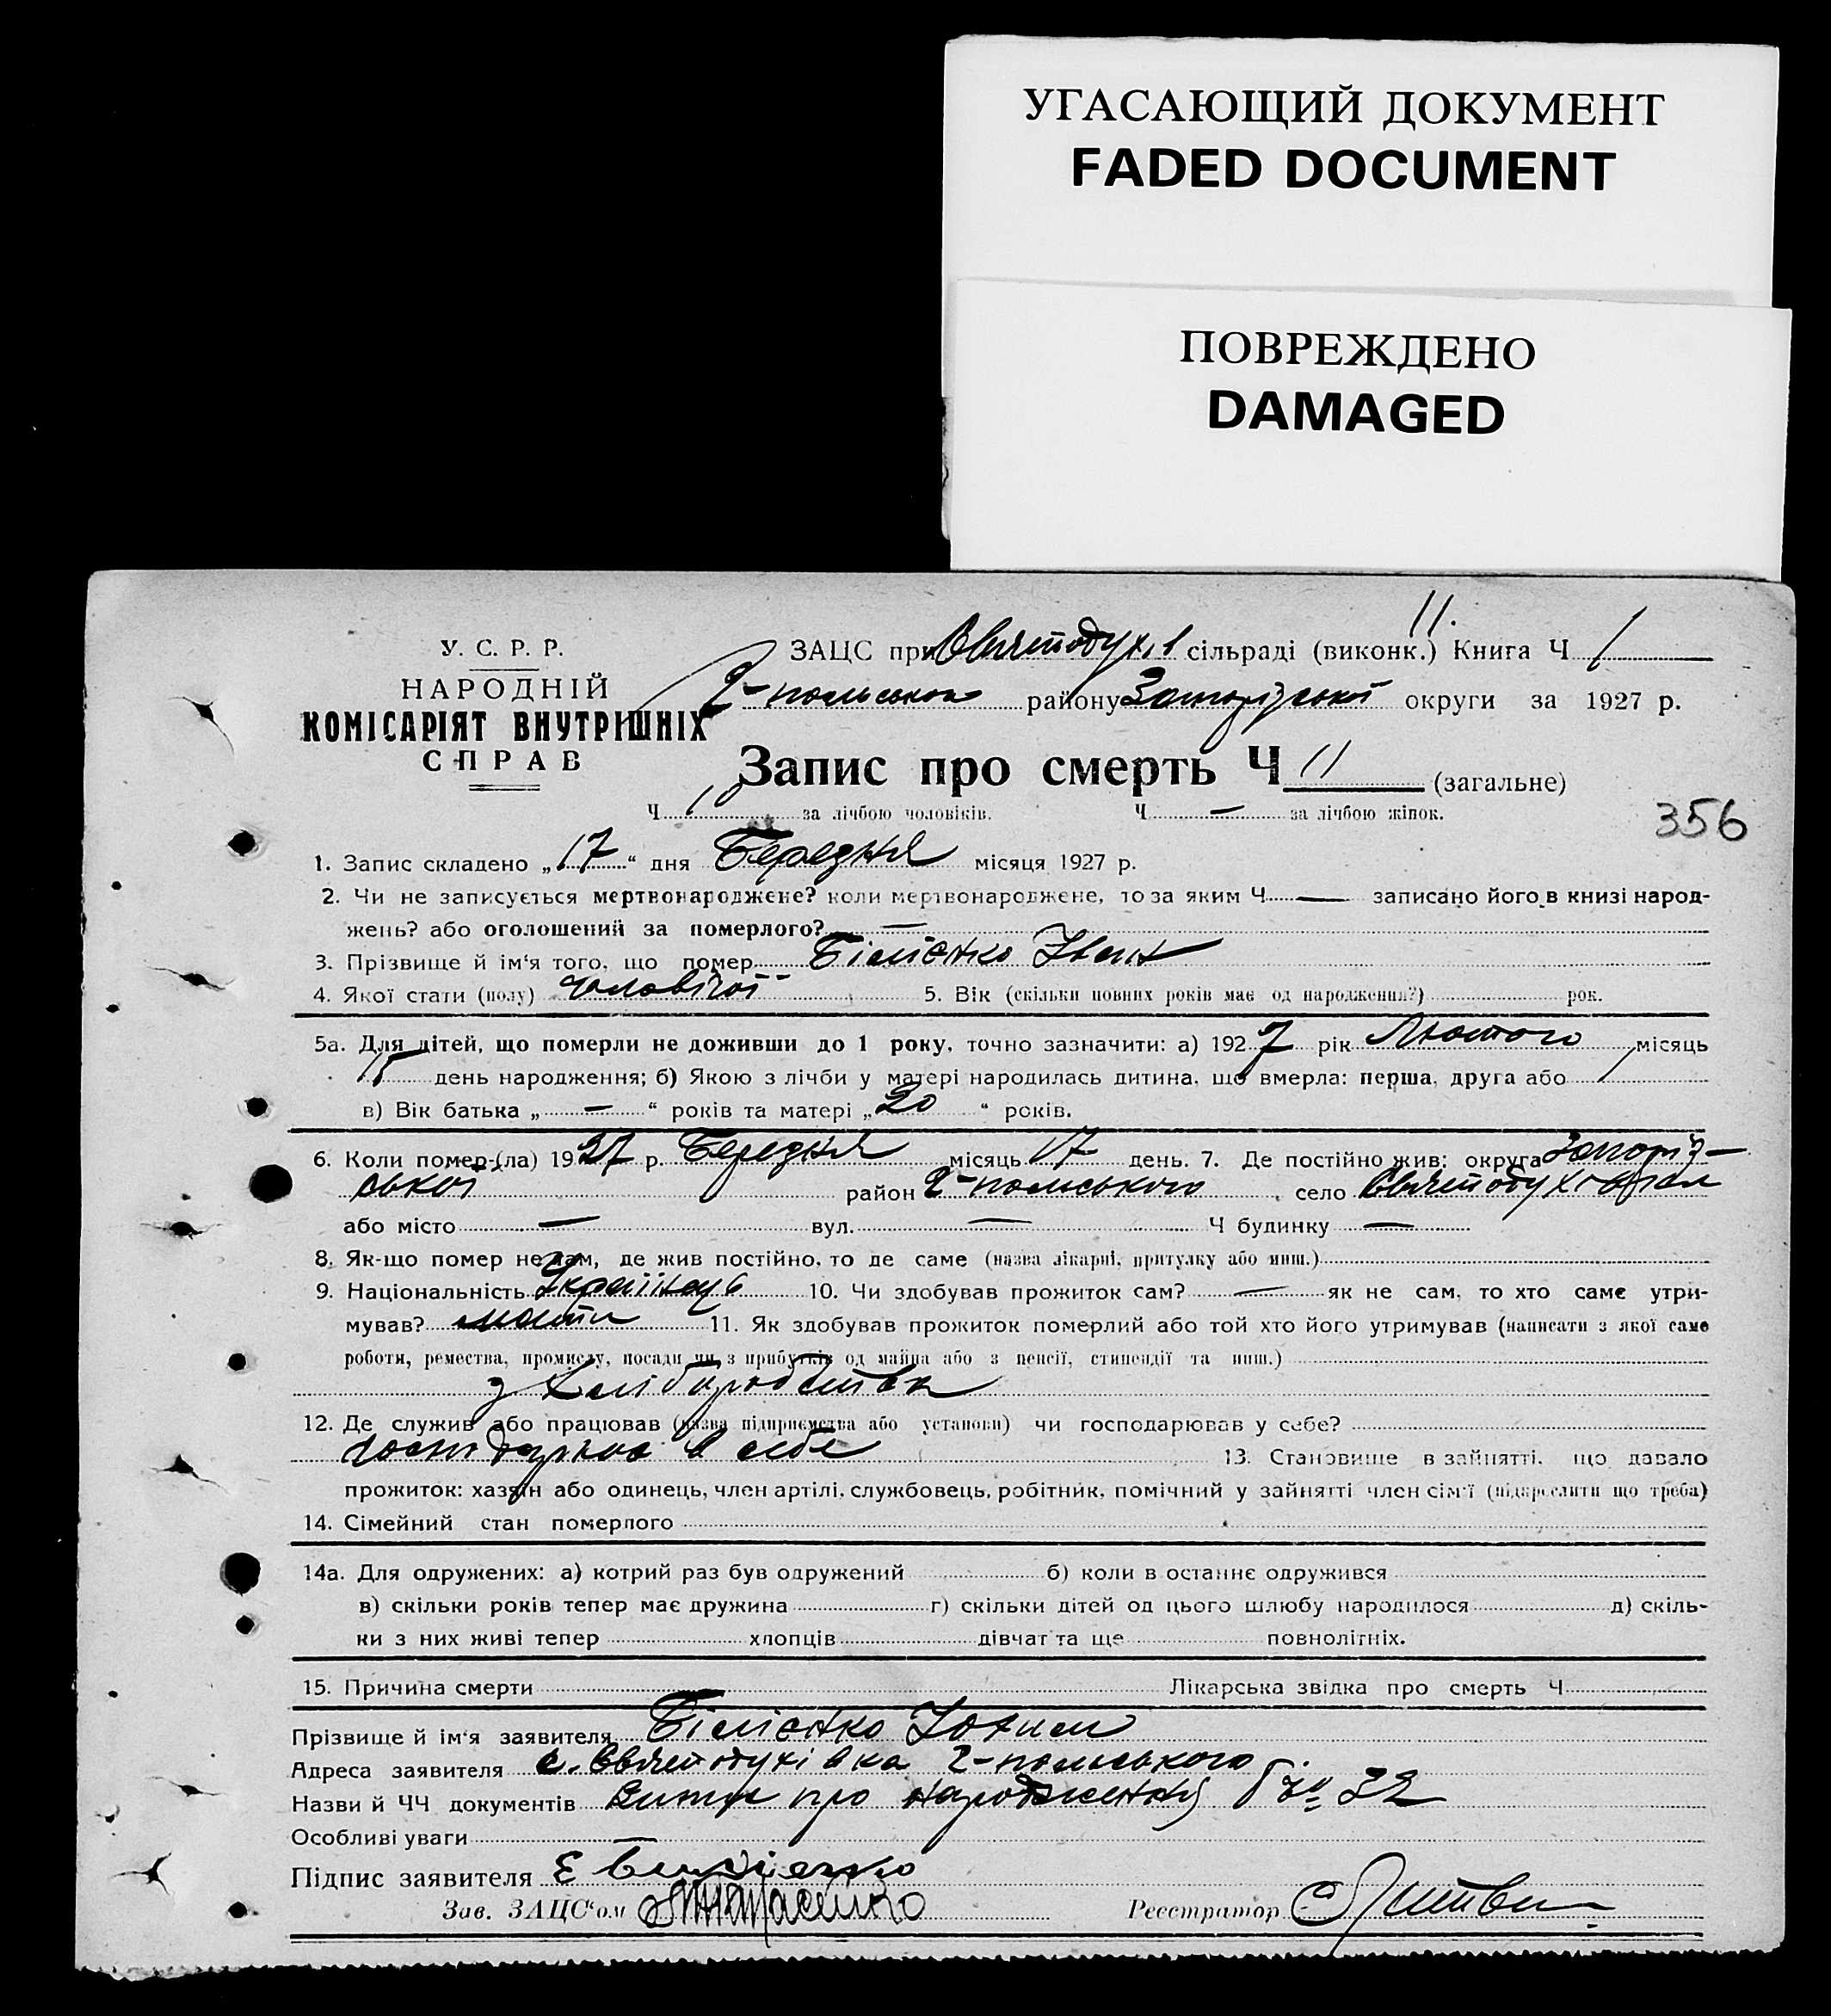 УГАСАЮЩИЙ ДОКУМЕНТ
FADED DOCUMENT
ПОВРЕЖДЕНО
DAMAGED
11.
У. С. Р. Р.
НАРОДНІЙ
КОМІСАРІЯТ ВНУТРІШНІХ
СПРАВ
ЗАЦС при Святодухів сільраді (виконк.) Книга Ч 1
2-польськ району Запорізської округи за 1927 р.
Запис про смерть Ч 11 (загальне)
Ч 10 за лічбою чоловіків. Ч — за лічбою жінок.
356
1. Запис складено „17“ дня Березня місяця 1927 р.
2. Чи не записується мертвонароджене? коли мертвонароджене, то за яким Ч — записано його в книзі народ-
жень? або оголошений за померлого? —
3. Прізвище й ім'я того, що помер Білієнко Іван
4. Якої стати (полу) чоловічої 5. Вік (скільки повних років має од народження?) рок.
5а. Для дітей, що померли не доживши до 1 року, точно зазначити: а) 1927 рік Лютого місяць
15 день народження; б) Якою з лічби у матері народилась дитина, що вмерла: перша, друга або 1
в) Вік батька „—“ років та матері „20“ років.
6. Коли помер-(ла) 1927 р. Березня місяць 17 день. 7. Де постійно жив: округа Запоріз-
ської район 2-польського, село Святодухівка
або місто — вул. — Ч будинку —
8. Як-що помер не там, де жив постійно, то де саме (назва лікарні, притулку або инш.)
9. Національність Українець 10. Чи здобував прожиток сам? — як не сам, то хто саме утри-
мував? мати 11. Як здобував прожиток померлий або той хто його утримував (написати з якої саме
роботи, ремества, промислу, посади чи з прибутків од майна або з пенсії, стипендії та инш.)
з Хліборобства
12. Де служив або працював (назва підприємства або установи) чи господарював у себе?
господарює в себе 13. Становище в зайнятті, що давало
прожиток: хазяїн або одинець, член артілі, службовець, робітник, помічний у зайнятті член сім'ї (підкреслити що треба)
14. Сімейний стан померлого
14а. Для одружених: а) котрий раз був одружений б) коли в останнє одружився
в) скільки років тепер має дружина г) скільки дітей од цього шлюбу народилося д) скіль-
ки з них живі тепер хлопців дівчат та ще повнолітніх.
15. Причина смерти Лікарська звідка про смерть Ч
Прізвище й ім'я заявителя Білієнко Юхим
Адреса заявителя с. Святодухівка 2-польського
Назви й ЧЧ документів Витяг про народження 32
Особливі уваги —
Підпис заявителя Е
Зав. ЗАЦС'ом Реєстратор Литвин